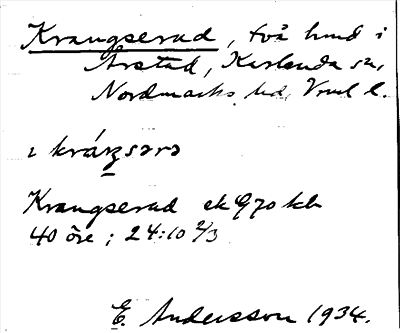 Krangserud, två hmd i
Årstad, Karlanda sn,
Nordmarks hd, Vrml l.
ı kráŋsərə
Krangserud ek 970 kb
40 öre; 24:10 2/3
E. Andersson 1934.